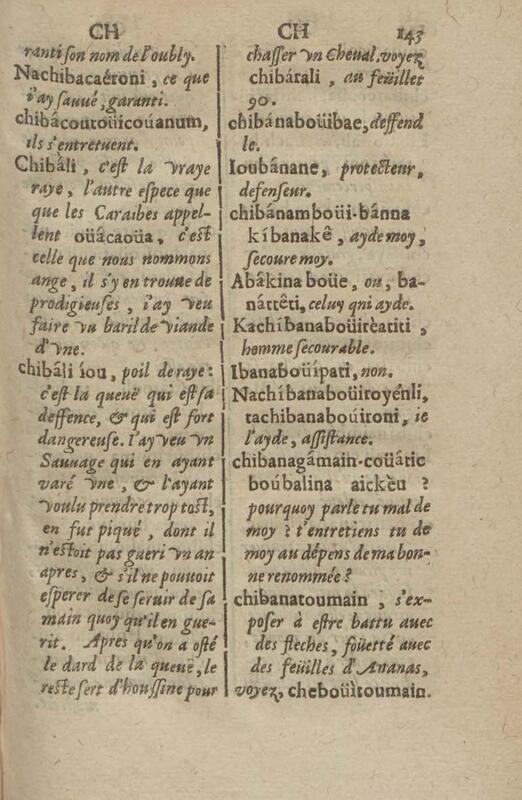 CH
CH
143
ranti son nom de l'oubly.
Nachibacaéroni, ce que
i'ay sauué, garanti.
chibácoutoüicoüanum,
ils s'entretuent.
Chibáli, c'est la vraye
raye, l'autre espece que
que les Caraibes appel-
lent oüácaoüa, c'est
celle que nous nommons
ange, il s'y en trouue de
prodigieuses, i'ay veu
faire vn baril de viande
d'vne.
chibáli íou, poil de raye:
c'est la queuë qui est sa
deffence, & qui est fort
dangereuse. I'ay veu vn
Sauuage qui en ayant
varé vne, & l'ayant
voulu prendre trop tost,
en fut piqué, dont il
n'estoit pas gueri vn an
apres, & s'il ne pouuoit
esperer de se seruir de sa
main quoy qu'il en gue-
rit. Apres qu'on a osté
le dard de la queuë, le
reste sert d'houssine pour
chasser vn Cheual, voyez
chibárali, au feüillet
90.
chibánaboüibae, deffend
le.
Ioubánane, protecteur,
defenseur.
chibánamboüi-bánna
kíbanakê, ayde moy,
secoure moy.
Abákina boüe, ou, ba-
nárrêti, celuy qni ayde.
Kachíbanaboüirèatiti,
homme secourable.
Ibanaboüípati, non.
Nachíbanaboüiroyénli,
tachibanaboüironi, ie
l'ayde, assistance.
chibanagámain-coüátic
boúbalina aickèu ?
pourquoy parle tu mal de
moy ? t'entretiens tu de
moy au dépens de ma bon-
ne renommée ?
chibanatoumain, s'ex-
poser à estre battu auec
des fleches, foüetté auec
des feüilles d'Ananas,
voyez, cheboüitoumain.